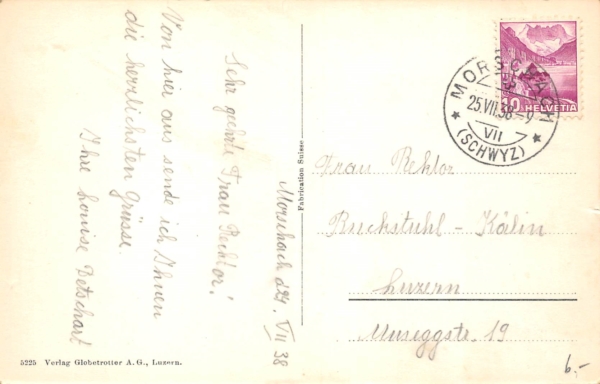 Morschach d. 24. VII 38
Sehr geehrte Frau Rektor!
Von hier aus sende ich Ihnen
die herzlichsten Grüsse.
Ihre Louise Betschart
Fabrication Suisse
5225 Verlag Globetrotter A. G., Luzern.
MORSCHACH
25.VII.38-9
VII
(SCHWYZ)
10 HELVETIA
Frau Rektor
Ruckstuhl-Kälin
Luzern
Museggstr. 19
6.-